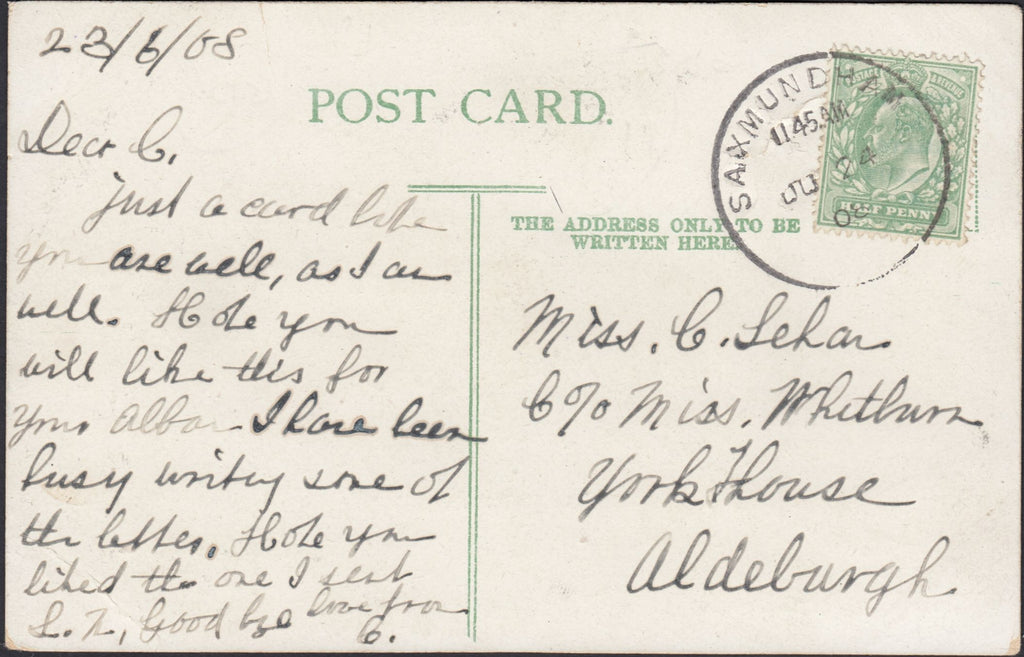 23/6/08
POST CARD.
Dear C.
Just a card like
you are well, as I am
well. Hope you
will like this for
your Album I have been
busy writing some of
the letters. Hope you
liked the one I sent
Good bye love from
C.
THE ADDRESS ONLY TO BE
WRITTEN HERE
SAXMUNDHAM
11.45AM
JU 24
08
POSTAGE REVENUE
HALF PENNY
Miss. C.
C/o Miss. Whitburn
York House
Aldeburgh